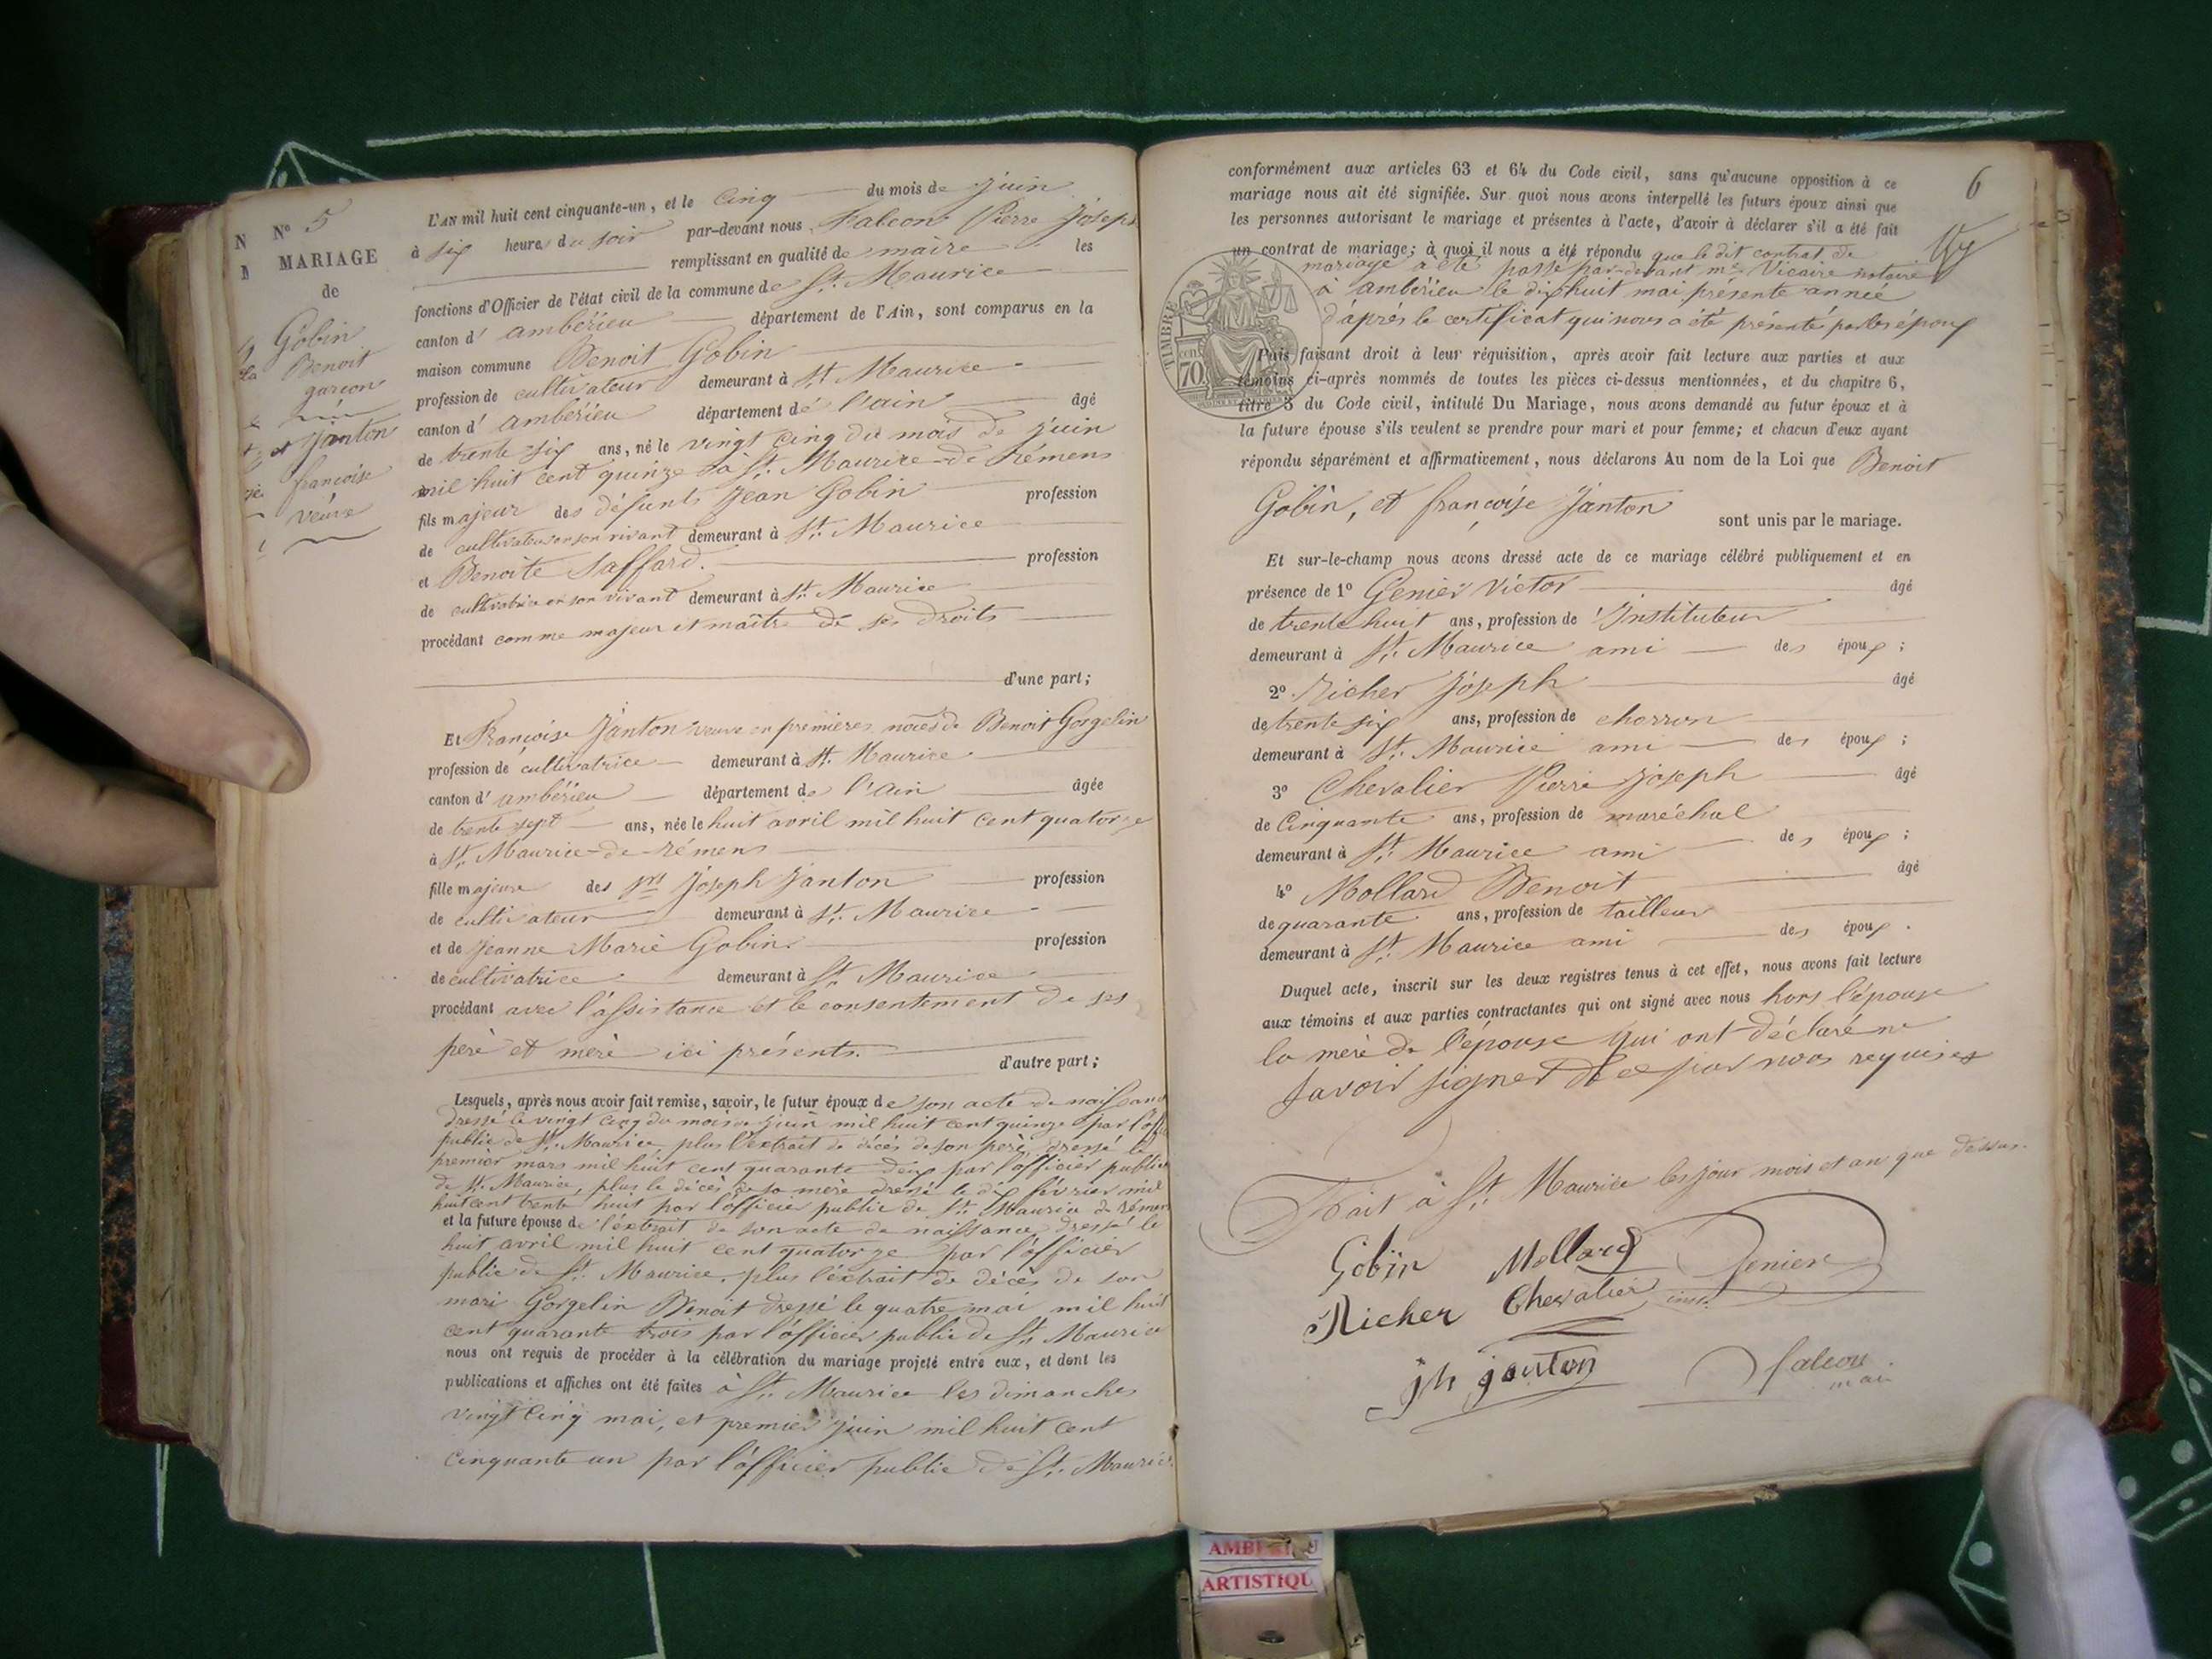 N° 5
MARIAGE
de
Gobin
Benoit
garçon
et Janton
françoise
veuve
L'AN mil huit cent cinquante-un, et le cinq du mois de juin
à six heures du soir par-devant nous Falcon Pierre Joseph
remplissant en qualité de maire les
fonctions d'Officier de l'état civil de la commune de St. Maurice
canton d' ambérieu département de l'Ain, sont comparus en la
maison commune Benoit Gobin
profession de cultivateur demeurant à St. Maurice
canton d' ambérieu département de l'ain âgé
de trente six ans, né le vingt cinq du mois de juin
mil huit cent quinze à St. Maurice-de-Rémens
fils majeur des défunts Jean Gobin profession
de cultivateur en son vivant demeurant à St. Maurice
et Benoite Saffard. profession
de cultivatrice en son vivant demeurant à St. Maurice
procédant comme majeur et maître de ses droits
d'une part;
Et Françoise Janton veuve en premières noces de Benoit Gorgelin
profession de cultivatrice demeurant à St. Maurice
canton d' ambérieu département de l'ain âgée
de trente sept ans, née le huit avril mil huit cent quatorze
à St. Maurice-de-rémens
fille majeure des Joseph Janton profession
de cultivateur demeurant à St. Maurice
et de Jeanne Marie Gobin profession
de cultivatrice demeurant à St. Maurice
procédant avec l'assistance et le consentement de ses
père et mère ici présents.
d'autre part;
Lesquels, après nous avoir fait remise, savoir, le futur époux de son acte de naissance
dressé le vingt cinq du mois de juin mil huit cent quinze par l'off
public de St. Maurice, plus l'extrait de décès de son père dressé le
premier mars mil huit cent quarante deux par l'officier public
de St. Maurice, plus le décès de sa mère dressé le dix février mil
huit cent trente huit par l'officier public de St. Maurice de rémens
et la future épouse de l'extrait de son acte de naissance dressé le
huit avril mil huit cent quatorze par l'officier
public de St. Maurice, plus l'extrait de décès de son
mari Gorgelin Benoit dressé le quatre mai mil huit
cent quarante trois par l'officier public de St. Maurice
nous ont requis de procéder à la célébration du mariage projeté entre eux, et dont les
publications et affiches ont été faites à St. Maurice les dimanches
vingt cinq mai, et premier juin mil huit cent
cinquante un par l'officier public de St. Maurice
6
conformément aux articles 63 et 64 du Code civil, sans qu'aucune opposition à ce
mariage nous ait été signifiée. Sur quoi nous avons interpellé les futurs époux ainsi que
les personnes autorisant le mariage et présentes à l'acte, d'avoir à déclarer s'il a été fait
un contrat de mariage; à quoi il nous a été répondu que le dit contrat de
mariage a été passé par-devant me. Vicaire notaire
à ambérieu le dix huit mai présente année
d'après le certificat qui nous a été présenté par les époux
TIMBRE
70 cen
Puis faisant droit à leur réquisition, après avoir fait lecture aux parties et aux
témoins ci-après nommés de toutes les pièces ci-dessus mentionnées, et du chapitre 6,
titre 5 du Code civil, intitulé Du Mariage, nous avons demandé au futur époux et à
la future épouse s'ils veulent se prendre pour mari et pour femme; et chacun d'eux ayant
répondu séparément et affirmativement, nous déclarons Au nom de la Loi que Benoit
Gobin, et françoise Janton
sont unis par le mariage.
Et sur-le-champ nous avons dressé acte de ce mariage célébré publiquement et en
présence de 1° Genier Victor âgé
de trente huit ans, profession de Instituteur
demeurant à St. Maurice ami des époux;
2° Richer Joseph âgé
de trente six ans, profession de charron
demeurant à St. Maurice ami des époux;
3° Chevalier Pierre Joseph âgé
de Cinquante ans, profession de maréchal
demeurant à St. Maurice ami des époux;
4° Mollard Benoit âgé
de quarante ans, profession de tailleur
demeurant à St. Maurice ami des époux.
Duquel acte, inscrit sur les deux registres tenus à cet effet, nous avons fait lecture
aux témoins et aux parties contractantes qui ont signé avec nous hors l'épouse
la mère de l'épouse qui ont déclaré ne
savoir signer de ce par nous requises
Fait à St. Maurice les jour mois et an que dessus.
Gobin Mollard Genier
Richer Chevalier inst.
jh janton falcon
mair
AMBERIEU
ARTISTIQU